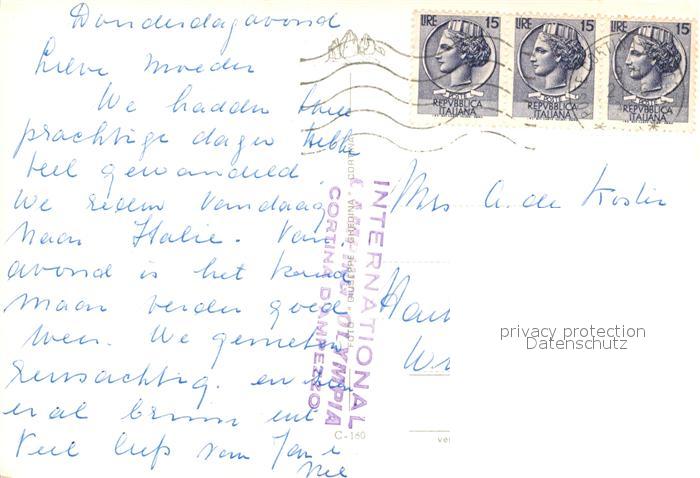 Donderdagavond
Lieve Moeder
We hadden twee
prachtige dagen
veel gewandeld.
We reden vandaag
naar Italie. Van-
avond is het koud
maar verder goed
weer. We genieten
en zien
er al bruin uit
Veel liefs van Jan
LIRE 15
POSTE
REPVBBLICA
ITALIANA
LIRE 15
POSTE
REPVBBLICA
ITALIANA
LIRE 15
POSTE
REPVBBLICA
ITALIANA
Mrs A. de Koster
INTERNATIONAL
OLYMPIA
CORTINA D'AMPEZZO
FOTO GIUSEPPE GHEDINA - CORTINA
C-160
privacy protection
Datenschutz